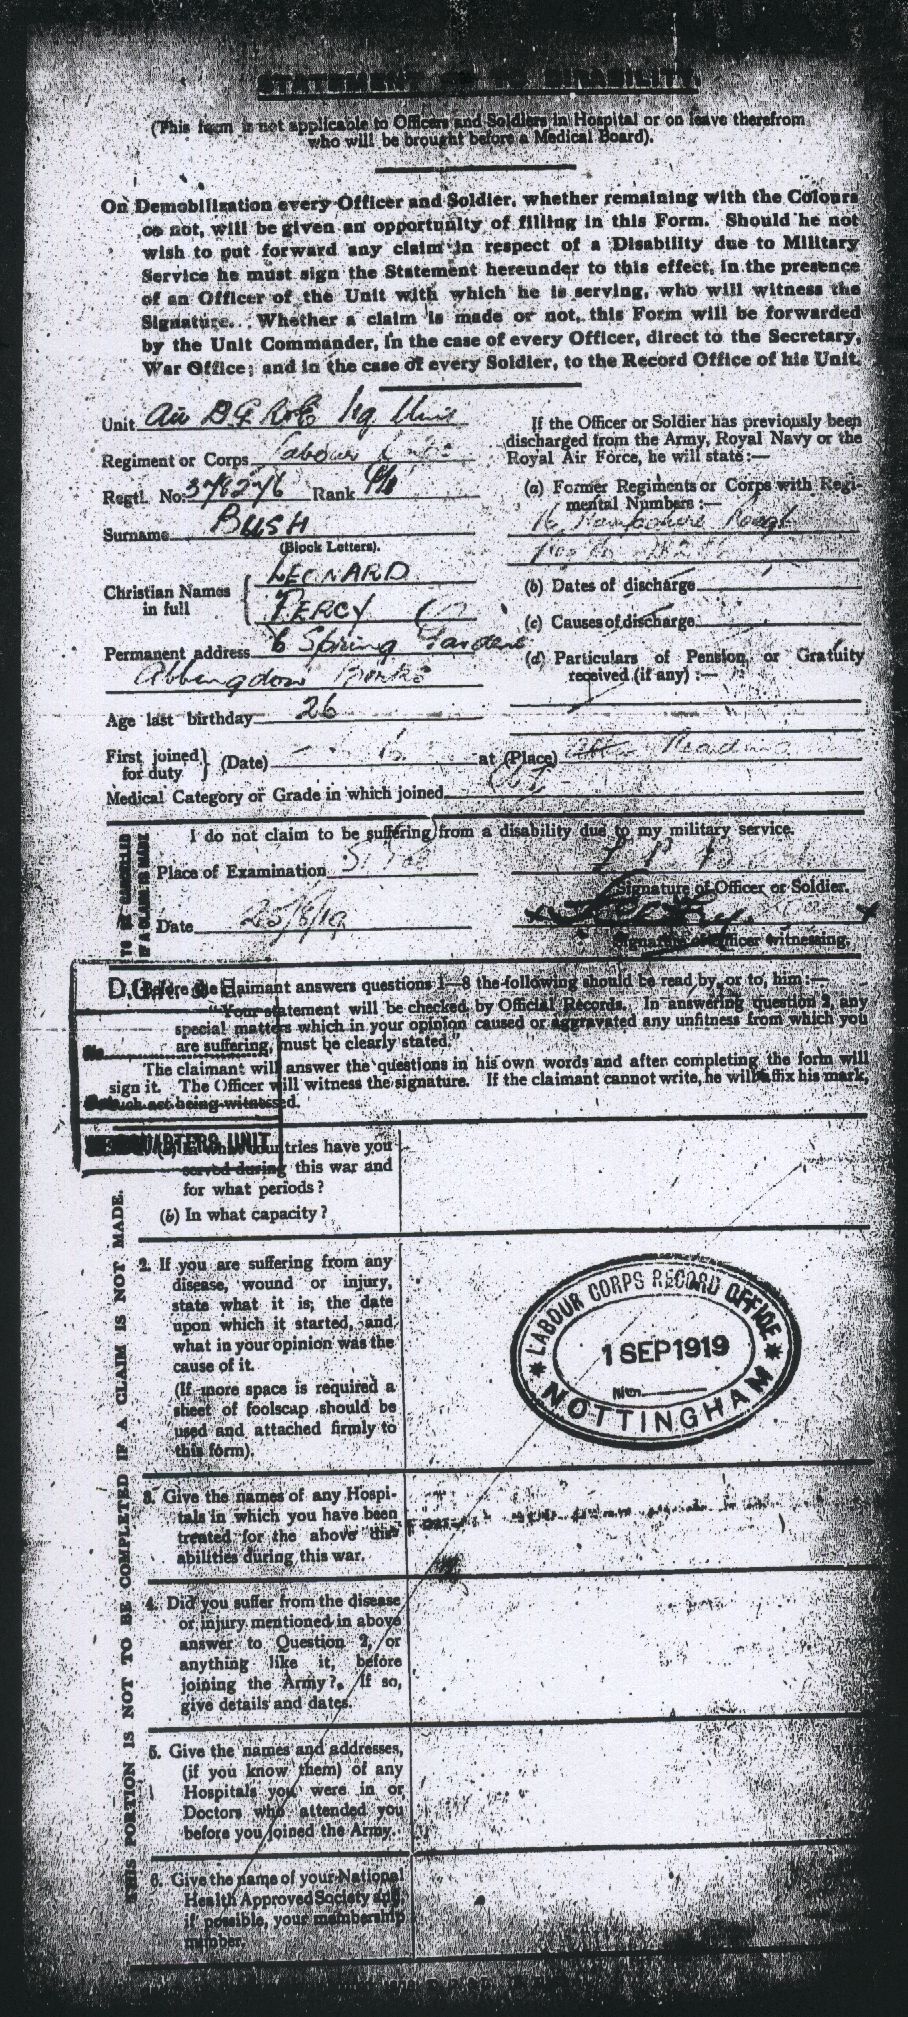 STATEMENT AS TO DISABILITY.
(This form is not applicable to Officers and Soldiers in Hospital or on leave therefrom
who will be brought before a Medical Board).
On Demobilization every Officer and Soldier, whether remaining with the Colours
or not, will be given an opportunity of filling in this Form. Should he not
wish to put forward any claim in respect of a Disability due to Military
Service he must sign the Statement hereunder to this effect, in the presence
of an Officer of the Unit with which he is serving, who will witness the
Signature. Whether a claim is made or not, this Form will be forwarded
by the Unit Commander, in the case of every Officer, direct to the Secretary,
War Office; and in the case of every Soldier, to the Record Office of his Unit.
Unit
Regiment or Corps Labour Corps
Regtl. No. 378276 Rank Pte
Surname BUSH
(Block Letters).
Christian Names in full LEONARD
PERCY
Permanent address 6 Spring Gardens
Abbingdon Berks
Age last birthday 26
If the Officer or Soldier has previously been
discharged from the Army, Royal Navy or the
Royal Air Force, he will state:—
(a) Former Regiments or Corps with Regi-
mental Numbers:—
(b) Dates of discharge
(c) Causes of discharge
(d) Particulars of Pension, or Gratuity
received (if any) :—
First joined for duty } (Date) at (Place) Reading
Medical Category or Grade in which joined
TO BE CANCELLED
IF A CLAIM IS MADE
I do not claim to be suffering from a disability due to my military service.
Place of Examination
Signature of Officer or Soldier.
Date 25/8/19
Signature of Officer witnessing.
Before the Claimant answers questions 1—8 the following should be read by, or to, him:—
"Your statement will be checked by Official Records. In answering question 2, any
special matters which in your opinion caused or aggravated any unfitness from which you
are suffering, must be clearly stated."
The claimant will answer the questions in his own words and after completing the form will
sign it. The Officer will witness the signature. If the claimant cannot write, he will affix his mark,
such act being witnessed.
No
HEADQUARTERS UNIT
THIS PORTION IS NOT TO BE COMPLETED IF A CLAIM IS NOT MADE.
(a) In what countries have you
served during this war and
for what periods?
(b) In what capacity?
2. If you are suffering from any
disease, wound or injury,
state what it is, the date
upon which it started, and
what in your opinion was the
cause of it.
(If more space is required a
sheet of foolscap should be
used and attached firmly to
this form).
LABOUR CORPS RECORD OFFICE
1 SEP 1919
NOTTINGHAM
3. Give the names of any Hospi-
tals in which you have been
treated for the above dis-
abilities during this war.
4. Did you suffer from the disease
or injury mentioned in above
answer to Question 2, or
anything like it, before
joining the Army? If so,
give details and dates.
5. Give the names and addresses,
(if you know them) of any
Hospitals you were in or
Doctors who attended you
before you joined the Army.
6. Give the name of your National
Health Approved Society and,
if possible, your membership
number.